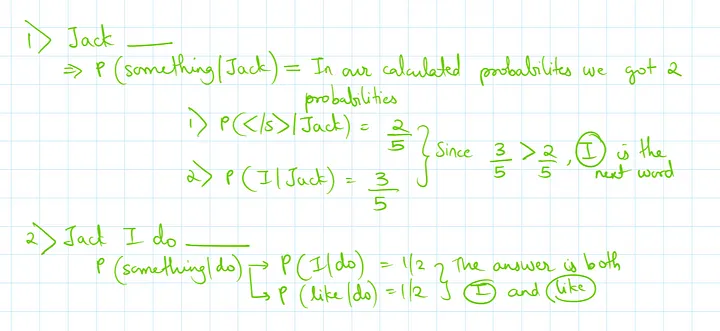 1> Jack ____
⇒ P (something|Jack) = In our calculated probabilites we got 2
probabilities
1> P(</s>|Jack) = 2/5
2> P(I|Jack) = 3/5
} Since 3/5 > 2/5, I is the
next word
2> Jack I do ____
P (something|do) → P(I|do) = 1/2
↳ P (like|do) = 1/2
} The answer is both
I and like